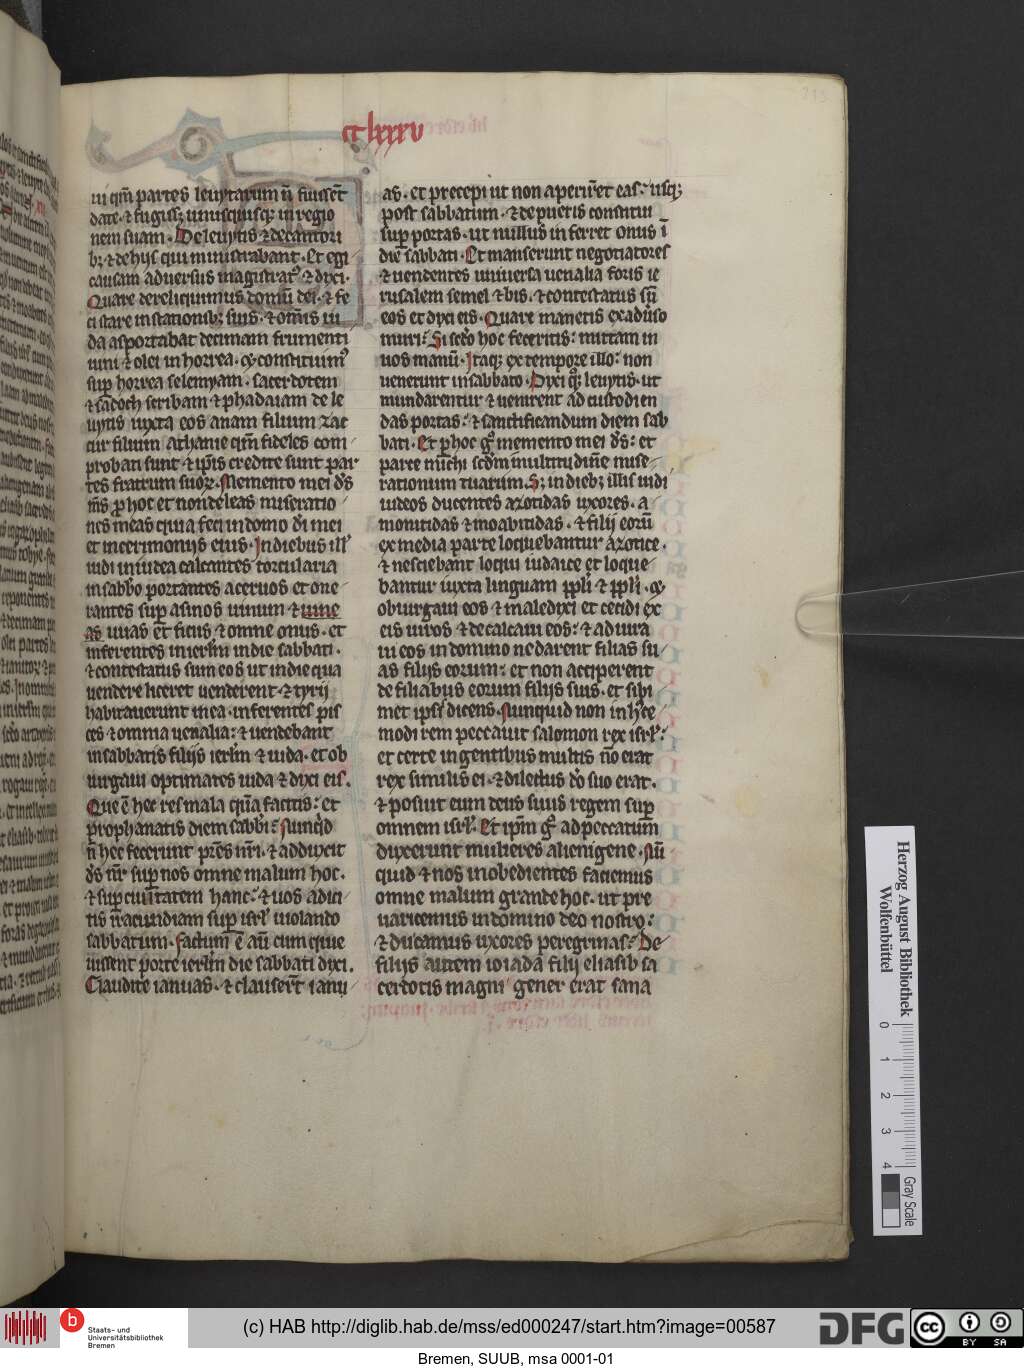 cclxxxv
ui qm̄ partes leuytarum n̄ fuissēt
date. ⁊ fugiss; unusquisq; in regio
nem suam. De leuitis ⁊ de cantori
b; ⁊ de hys qui ministrabant. Et egi
causam aduersus magistratꝰ ⁊ dyxi.
Quare dereliquimus domū dei. ⁊ fe
ci stare in stationib; suis. ⁊ om̄is iu
da asportabat decimam frumenti
uini ⁊ olei in horrea. ⁊ constituimꝰ
suꝑ horrea selemyam. sacerdotem
⁊ sadoch scribam ⁊ phadaiam de le
uytis iuxta eos anam filium zac
cur filium athanie qm̄ fideles com
probati sunt ⁊ ip̄is credite sunt par
tes fratrum suoꝝ. Memento mei d̄s
m̄s ꝓ hoc et non deleas miseratio
nes meas quia feci in domo d̄i mei
et in cerimonys eius. In diebus illꝭ
uidi in iudea calcantes torcularia
in sabb̄o portantes aceruos et one
rantes suꝑ asinos uinum ⁊ uuie
as uuas et ficus ⁊ omne onus. et
inferentes in ierl̄m in die sabbati.
⁊ contestatus sum eos ut in die qua
uendere liceret uenderent. ⁊ tyrij
habitauerunt in ea. inferentes pis
ces ⁊ omnia uenalia: ⁊ uendebant
in sabbatis filijs ierl̄m ⁊ iuda. et ob
iurgaui optimates iuda ⁊ dyxi eis.
Que ē hec res mala quā facitis: et
prophanatis diem sabbī: Nunqͥd
n̄ hec fecerunt prēs nr̄i. ⁊ adduxit
d̄s nr̄ suꝑ nos omne malum hoc.
⁊ suꝑ ciuitatem hanc: ⁊ uos adici
tis iracundiam suꝑ isrl̄ uiolando
sabbatum. factum ē aū cum quie
uissent porte ierl̄m die sabbati dyxi.
Claudite ianuas. ⁊ clauserūt ianu
as. et precepi ut non aperirēt eas: usq;
post sabbatum. ⁊ de pueris constitui
suꝑ portas. ut nullus inferret onus ī
die sabbati. Et manserunt negotiatores
⁊ uendentes uniuersa uenalia foris ie
rusalem semel ⁊ bis. ⁊ contestatus sū
eos et dyxi eis. Quare manetis ex aduso
muri: Si secdo hoc feceritis: mittam in
uos manū. Itaq; ex tempore illo: non
uenerunt in sabbato. Dyxi qq; leuytis. ut
mundarentur ⁊ uenirent ad custodien
das portas: ⁊ sanctificandum diem sab
bati. Et ꝓ hoc gͦ memento mei d̄s: et
parce michi scdm multitudinē mise
rationum tuarum. S; in dieb; illis uidi
iudeos ducentes azotidas uxores. a
monitidas ⁊ moabitidas. ⁊ filij eorū
ex media parte loquebantur azotice.
⁊ nesciebant loqui iudaice et loque
bantur iuxta linguam ppli ⁊ ppli. ⁊
obiurgaui eos ⁊ maledyxi et cecidi ex
eis uiros ⁊ decalcaui eos: ⁊ adiura
ui eos in domino ne darent filias su
as filijs eorum: et non acciperent
de filiabus eorum filijs suis. et sibi
met ipsis dicens. Nunquid non in h̄ce
modi rem peccauit salomon rex isrl̄:
et certe in gentibus multis nō erat
rex similis ei. ⁊ dilectus dō suo erat.
⁊ posuit eum deus suus regem suꝑ
omnem isrl̄. Et ip̄m gͦ ad peccatum
duxerunt mulieres alienigene. Nū
quid ⁊ nos inobedientes faciemus
omne malum grande hoc. ut pre
uaricemus in domino deo nostro:
⁊ ducamus uxores peregrinas: De
filijs autem ioiada filij eliasib sa
cerdotis magni gener erat sana
Herzog August Bibliothek
Wolfenbüttel
0 1 2 3 4
Gray Scale
b
Staats- und
Universitätsbibliothek
Bremen
(c) HAB http://diglib.hab.de/mss/ed000247/start.htm?image=00587
DFG
cc BY SA
Bremen, SUUB, msa 0001-01